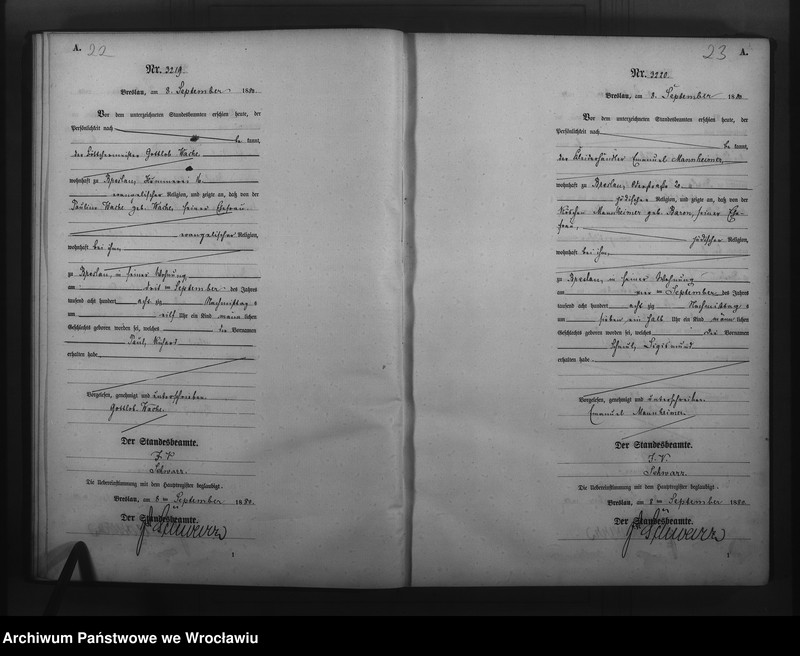 A. 22
Nr. 3219
Breslau, am 8. September 1880.
Vor dem unterzeichneten Standesbeamten erschien heute, der
Persönlichkeit nach
be kannt,
der Böttchermeister Gottlob Wache
wohnhaft zu Breslau,
evangelischer Religion, und zeigte an, daß von der
Pauline Wache geb. Wache, seiner Ehefrau
evangelischer Religion,
wohnhaft bei ihm,
zu Breslau, in seiner Wohnung
am September des Jahres
tausend acht hundert acht zig Nachmittag s
um Uhr ein Kind männ lichen
Geschlechts geboren worden sei, welches die Vornamen
Paul, Richard
erhalten habe.
Vorgelesen, genehmigt und unterschrieben
Gottlob Wache.
Der Standesbeamte.
J. V.
Schwarz.
Die Uebereinstimmung mit dem Hauptregister beglaubigt.
Breslau, am 8 ten September 1880.
Der Standesbeamte.
Schwarz
1
23 A.
Nr. 3220.
Breslau, am 8. September 1880.
Vor dem unterzeichneten Standesbeamten erschien heute, der
Persönlichkeit nach
be kannt,
der Kleiderhändler Emanuel Mannheimer
wohnhaft zu Breslau, Oderstraße 20
jüdischer Religion, und zeigte an, daß von der
Mannheimer geb. Baron, seiner Ehe-
frau,
jüdischer Religion,
wohnhaft bei ihm,
zu Breslau, in seiner Wohnung
am September des Jahres
tausend acht hundert acht zig Nachmittag s
um sieben ein halb Uhr ein Kind männ lichen
Geschlechts geboren worden sei, welches die Vornamen
Sigismund
erhalten habe.
Vorgelesen, genehmigt und unterschrieben.
Emanuel Mannheimer.
Der Standesbeamte.
J. V.
Schwarz.
Die Uebereinstimmung mit dem Hauptregister beglaubigt.
Breslau, am 8 ten September 1880.
Der Standesbeamte.
Schwarz
1
Archiwum Państwowe we Wrocławiu